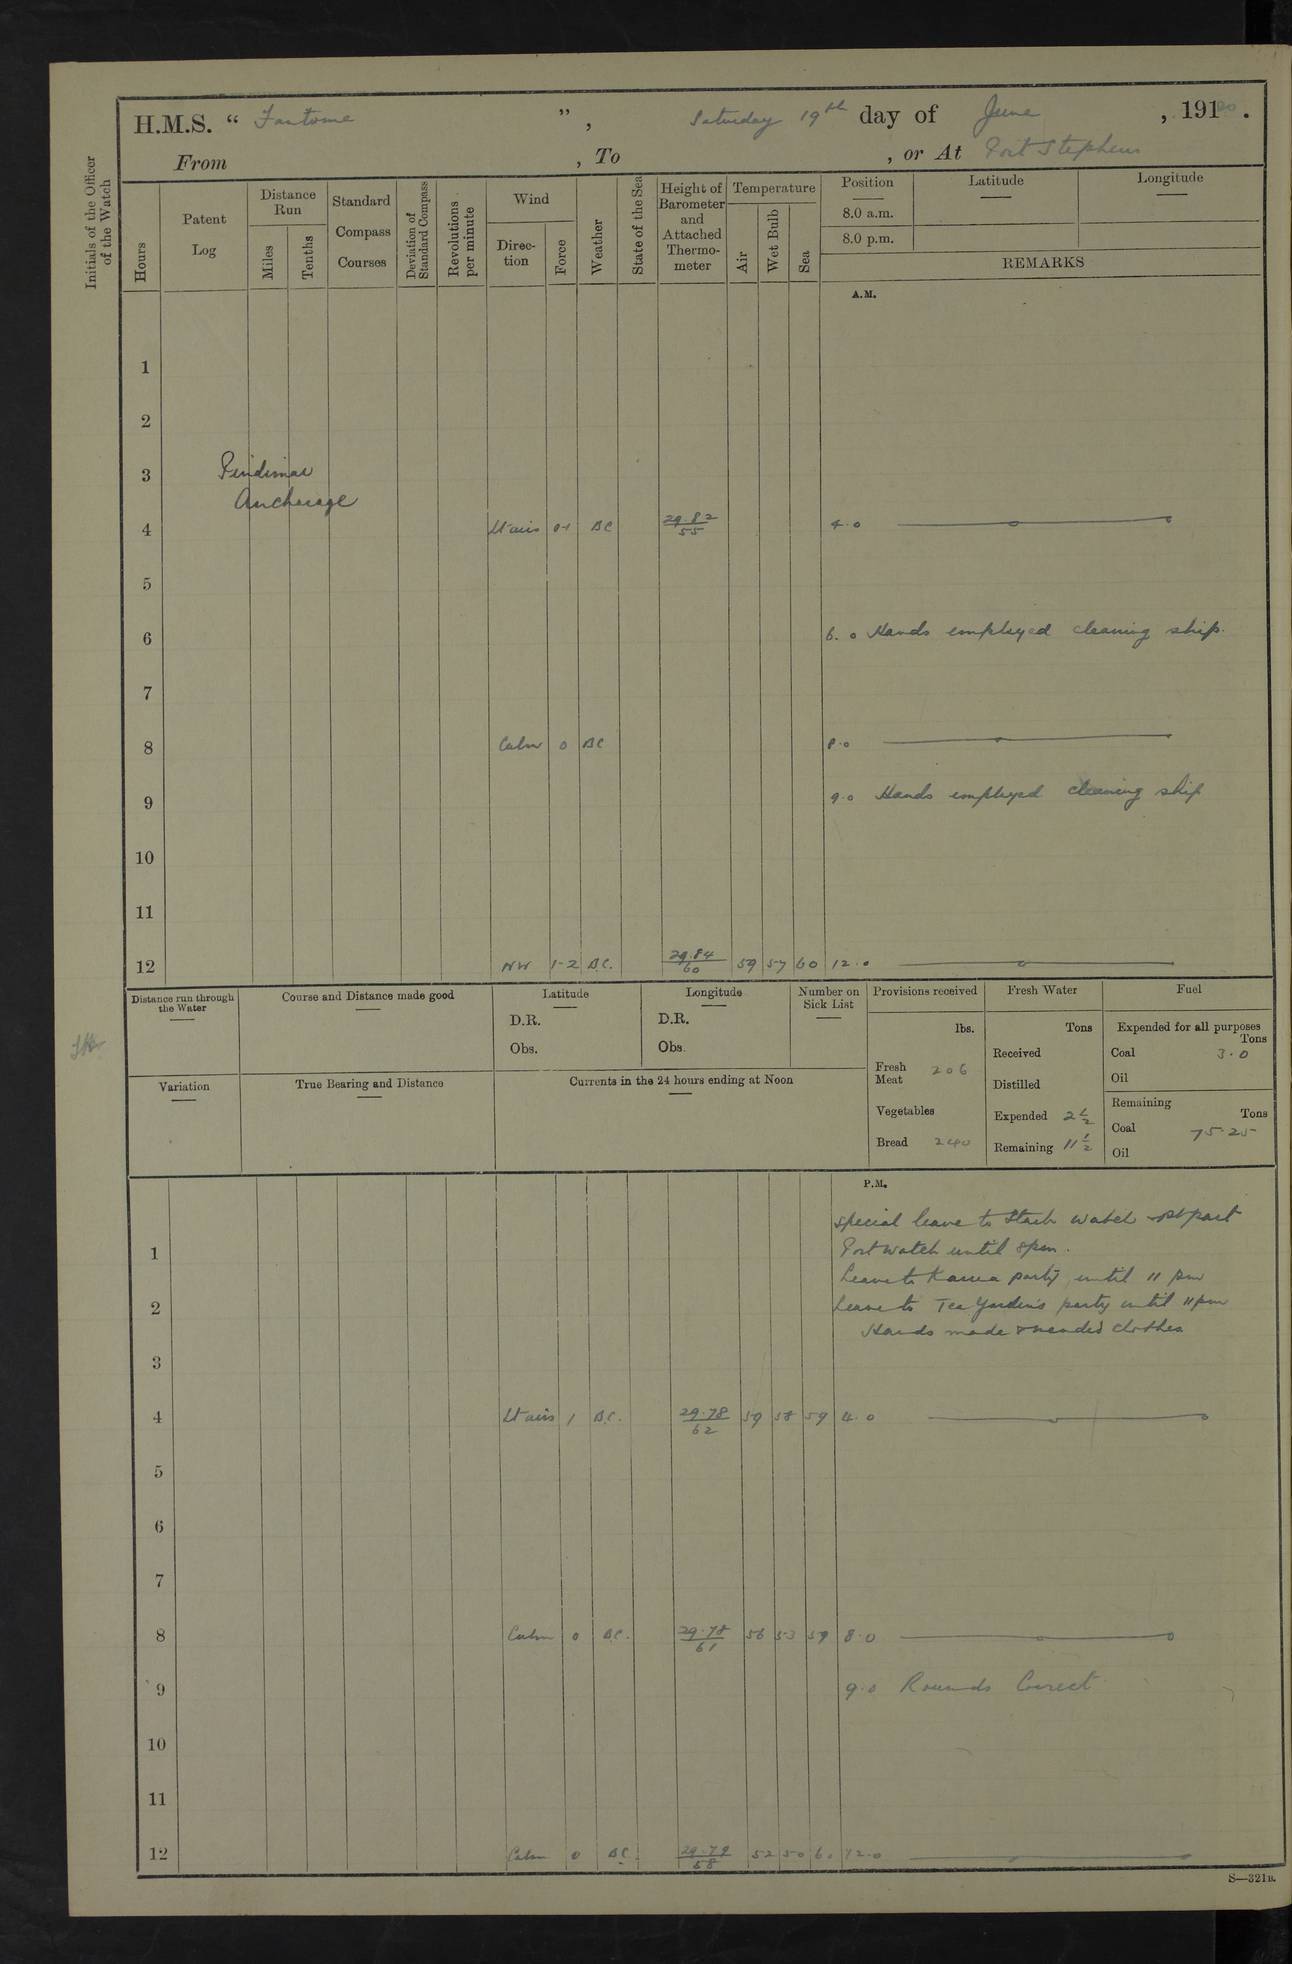 H.M.S. “ Fantome ”, Saturday 19th day of June, 1920.
From , To , or At Port Stephens
Initials of the Officer
of the Watch
Hours
Patent
Log
Distance
Run
Miles
Tenths
Standard
Compass
Courses
Deviation of
Standard Compass
Revolutions
per minute
Wind
Direc-
tion
Force
Weather
State of the Sea
Height of
Barometer
and
Attached
Thermo-
meter
Temperature
Air
Wet Bulb
Sea
Position
8.0 a.m.
8.0 p.m.
Latitude
Longitude
REMARKS
A.M.
1
2
3 Pindimar
Anchorage
4 Lt airs 0-1 BC 29.82/55 4.0
5
6 6.0 Hands employed cleaning ship.
7
8 Calm 0 BC 8.0
9 9.0 Hands employed cleaning ship
10
11
12 NW 1-2 B.C. 29.84/60 59 57 60 12.0
Distance run through
the Water
Course and Distance made good
Latitude
D.R.
Obs.
Longitude
D.R.
Obs.
Number on
Sick List
Variation
True Bearing and Distance
Currents in the 24 hours ending at Noon
Provisions received
lbs.
Fresh
Meat 206
Vegetables
Bread 240
Fresh Water
Tons
Received
Distilled
Expended 2 1/2
Remaining 11 1/2
Fuel
Expended for all purposes
Tons
Coal 3.0
Oil
Remaining
Tons
Coal 75.25
Oil
P.M.
Special leave to Starb watch part
1 Port watch until 8pm.
Leave to party until 11 pm
2 Leave to Tea Garden's party until 11pm
Hands made & mended clothes
3
4 Lt airs 1 B.C. 29.78/62 59 58 59 4.0
5
6
7
8 Calm 0 B.C. 29.78/61 56 53 59 8.0
9 9.0 Rounds Correct
10
11
12 Calm 0 BC. 29.79/58 52 50 60 12.0
S—321B.